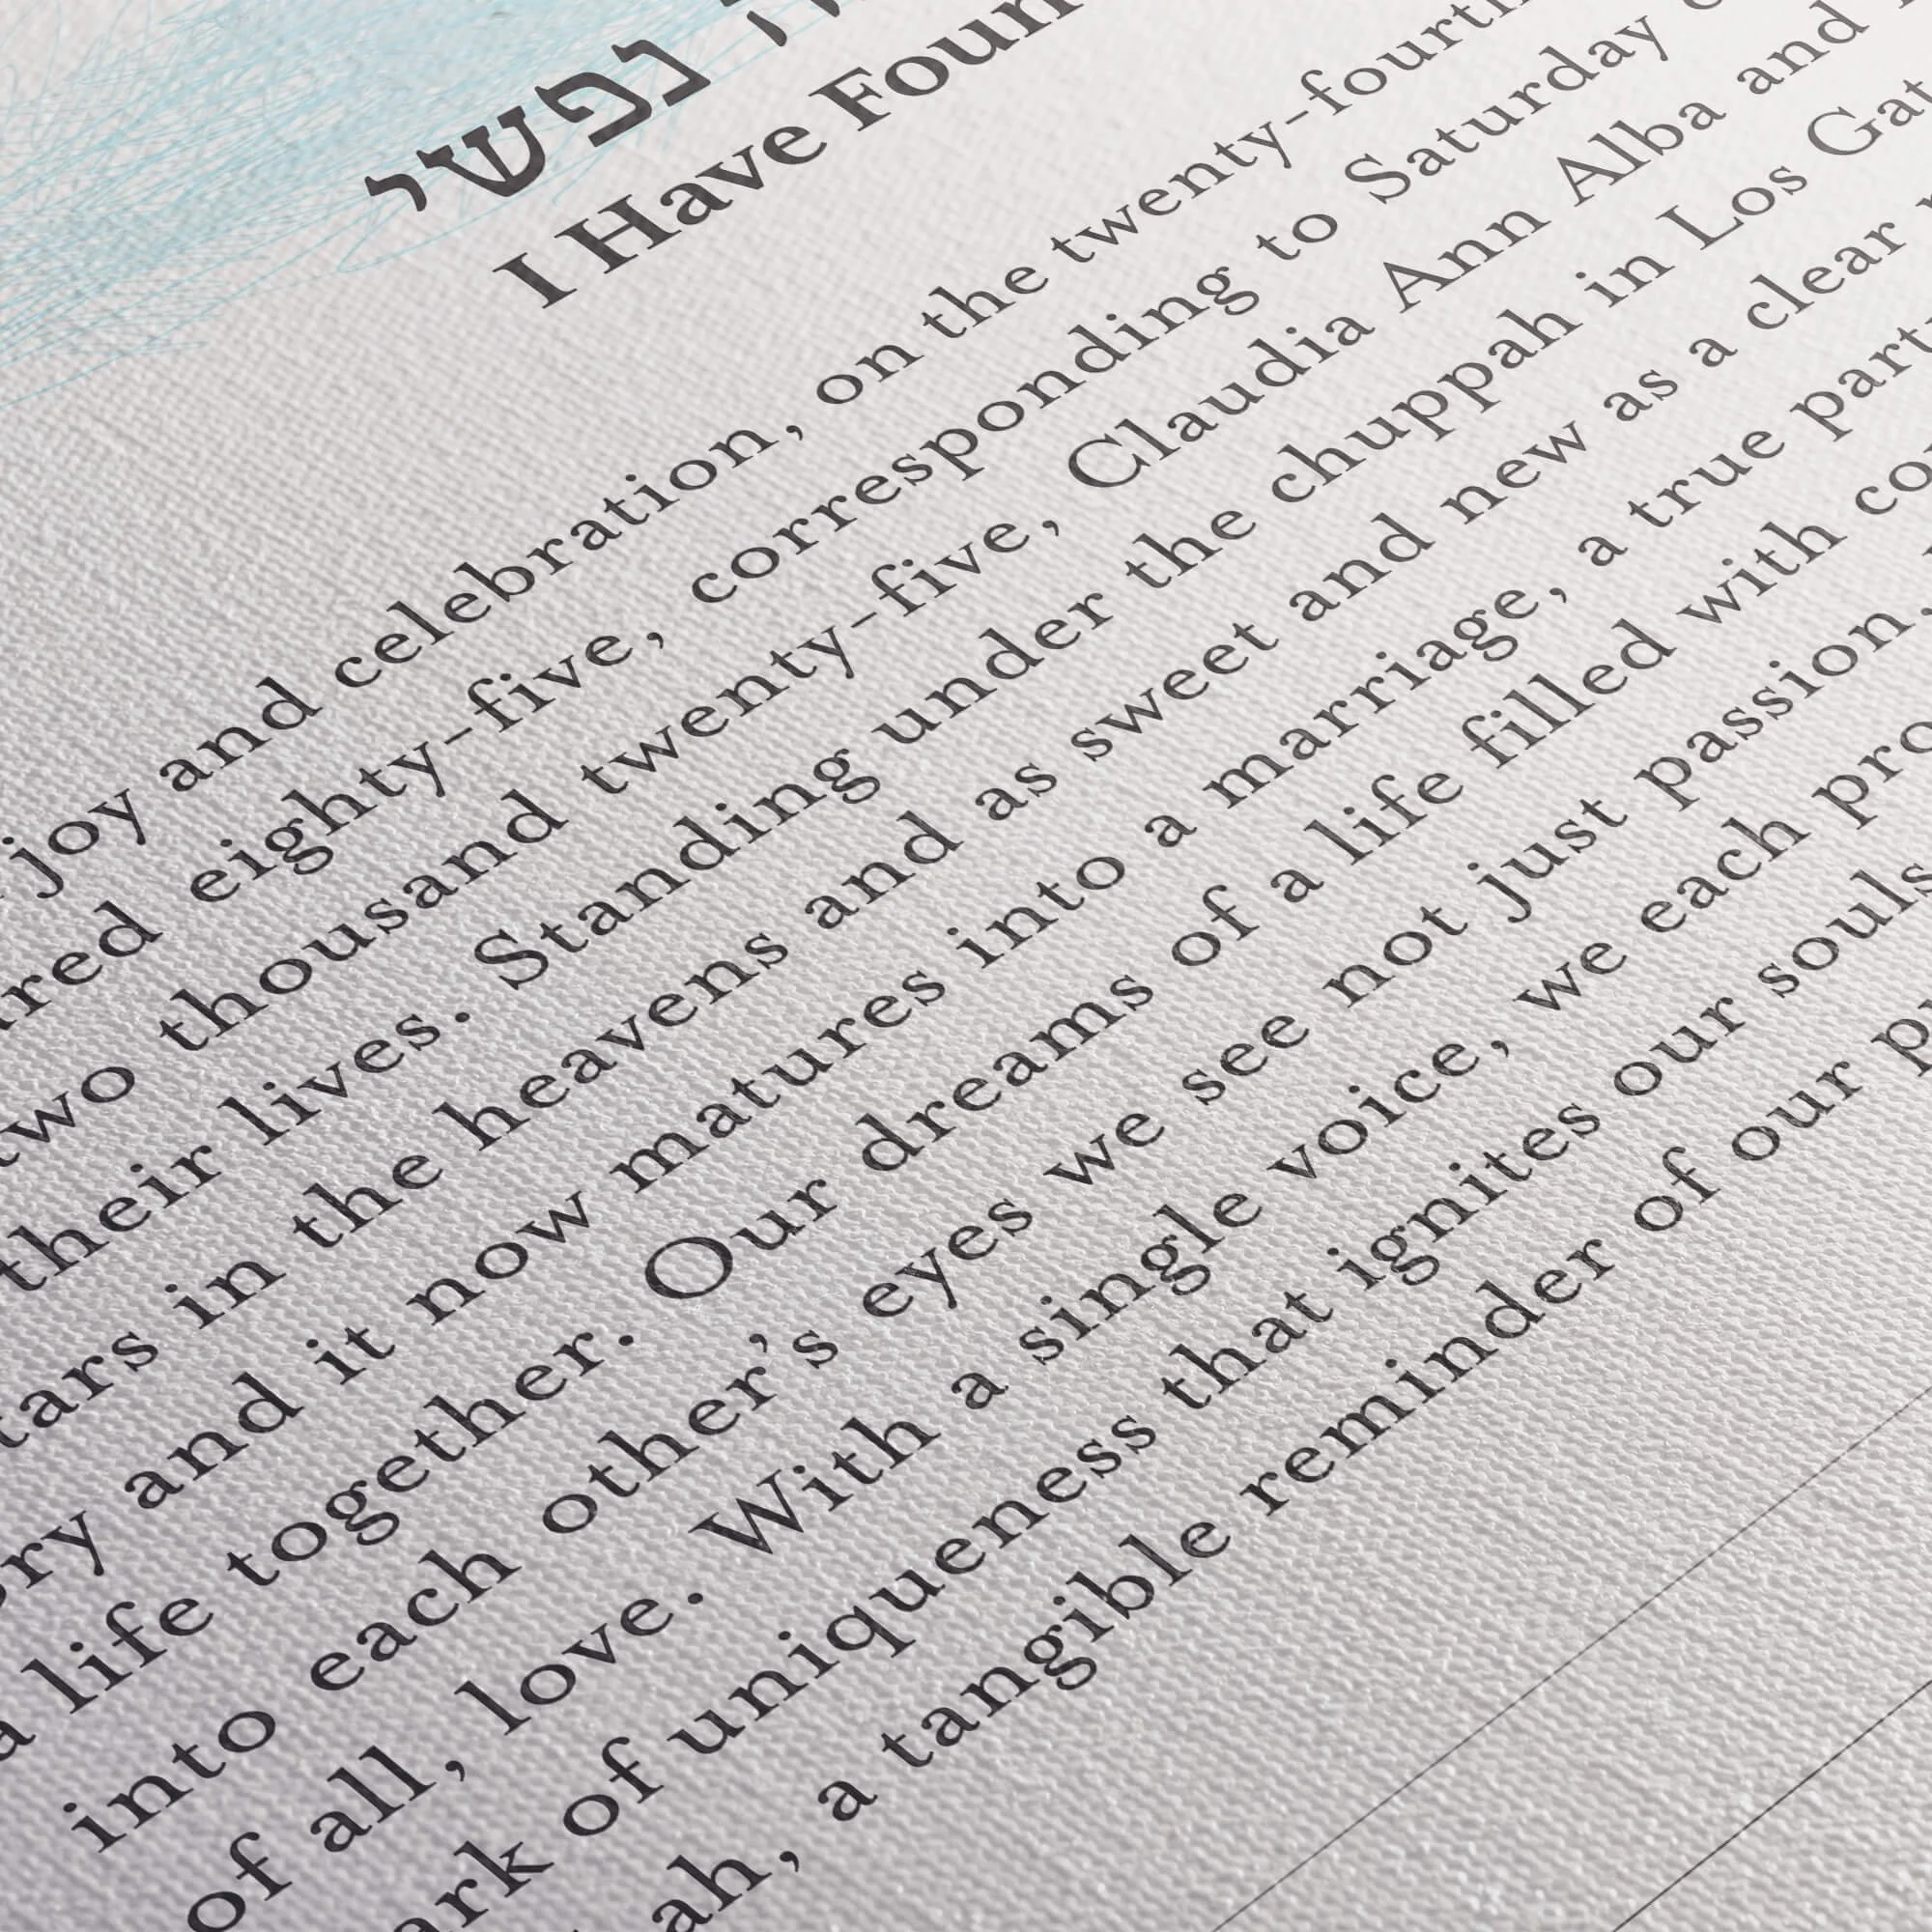 נפשי
I Have
joy and celebration, on the
eighty-five, corresponding to Saturday
two thousand twenty-five, Claudia Ann Alba and
their lives. Standing under the chuppah in Los
in the heavens and as sweet and new as a clear
and it now matures into a marriage, a true
life together. Our dreams of a life filled with
into each other's eyes we see not just passion,
of all, love. With a single voice, we each
of uniqueness that ignites our souls
a tangible reminder of our